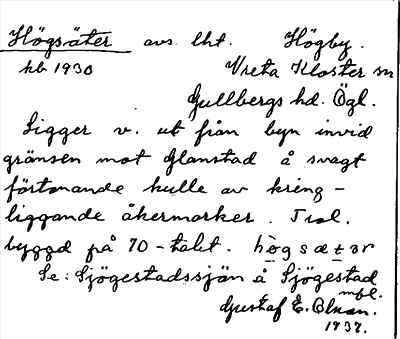 Högsäter avs. lht. Högby.
kb 1930 Vreta Kloster sn
Gullbergs hd. Ögl.
Ligger v. ut från byn invid
gränsen mot Glanstad å svagt
förtonande kulle av kring-
liggande åkermarker. Trol.
byggd på 70-talet. hògsætər
Se: Sjögestadssjön å Sjögestad
mfl.
Gustaf E. Blman.
1937.